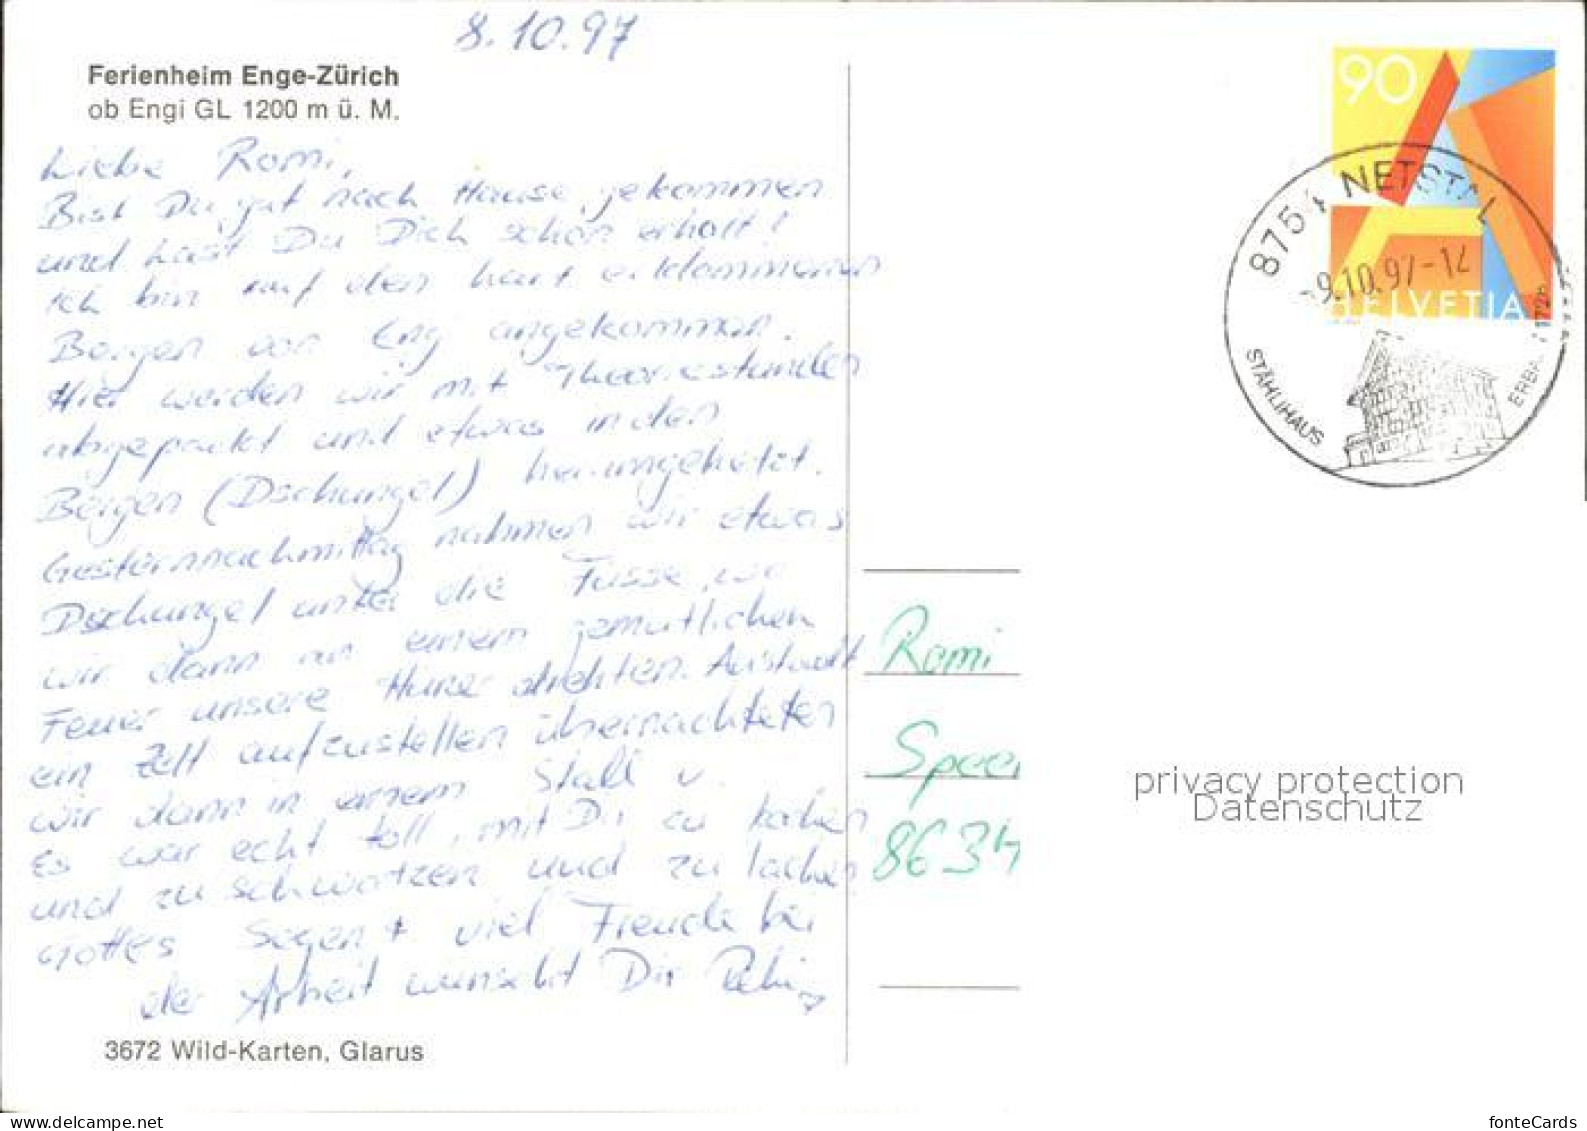 8.10.97
Ferienheim Enge-Zürich
ob Engi GL 1200 m ü. M.
Liebe Romi,
Bist Du gut nach Hause gekommen
und hast Du Dich schön erholt?
Ich bin auf den hart erklommenen
Bergen von Engi angekommen.
Hier werden wir mit Theoriestunden
abgepackt und etwas in den
Bergen (Dschungel) herumgehetzt.
Gesternnachmittag nahmen wir etwas
Dschungel unter die Füsse, wo
wir dann an einem gemütlichen
Feuer unsere drehten. Anstatt
ein Zelt aufzustellen übernachteten
wir dann in einem Stall u.
Es war echt toll, mit Dir zu kochen
und zu schwatzen und zu lachen
Gottes Segen + viel Freude bei
der Arbeit wünscht Dir
3672 Wild-Karten, Glarus
90
HELVETIA
8754 NETSTAL
-9.10.97-12
STÄHLIHAUS
ERB
Romi
Speer
8634
privacy protection
Datenschutz
fonteCards